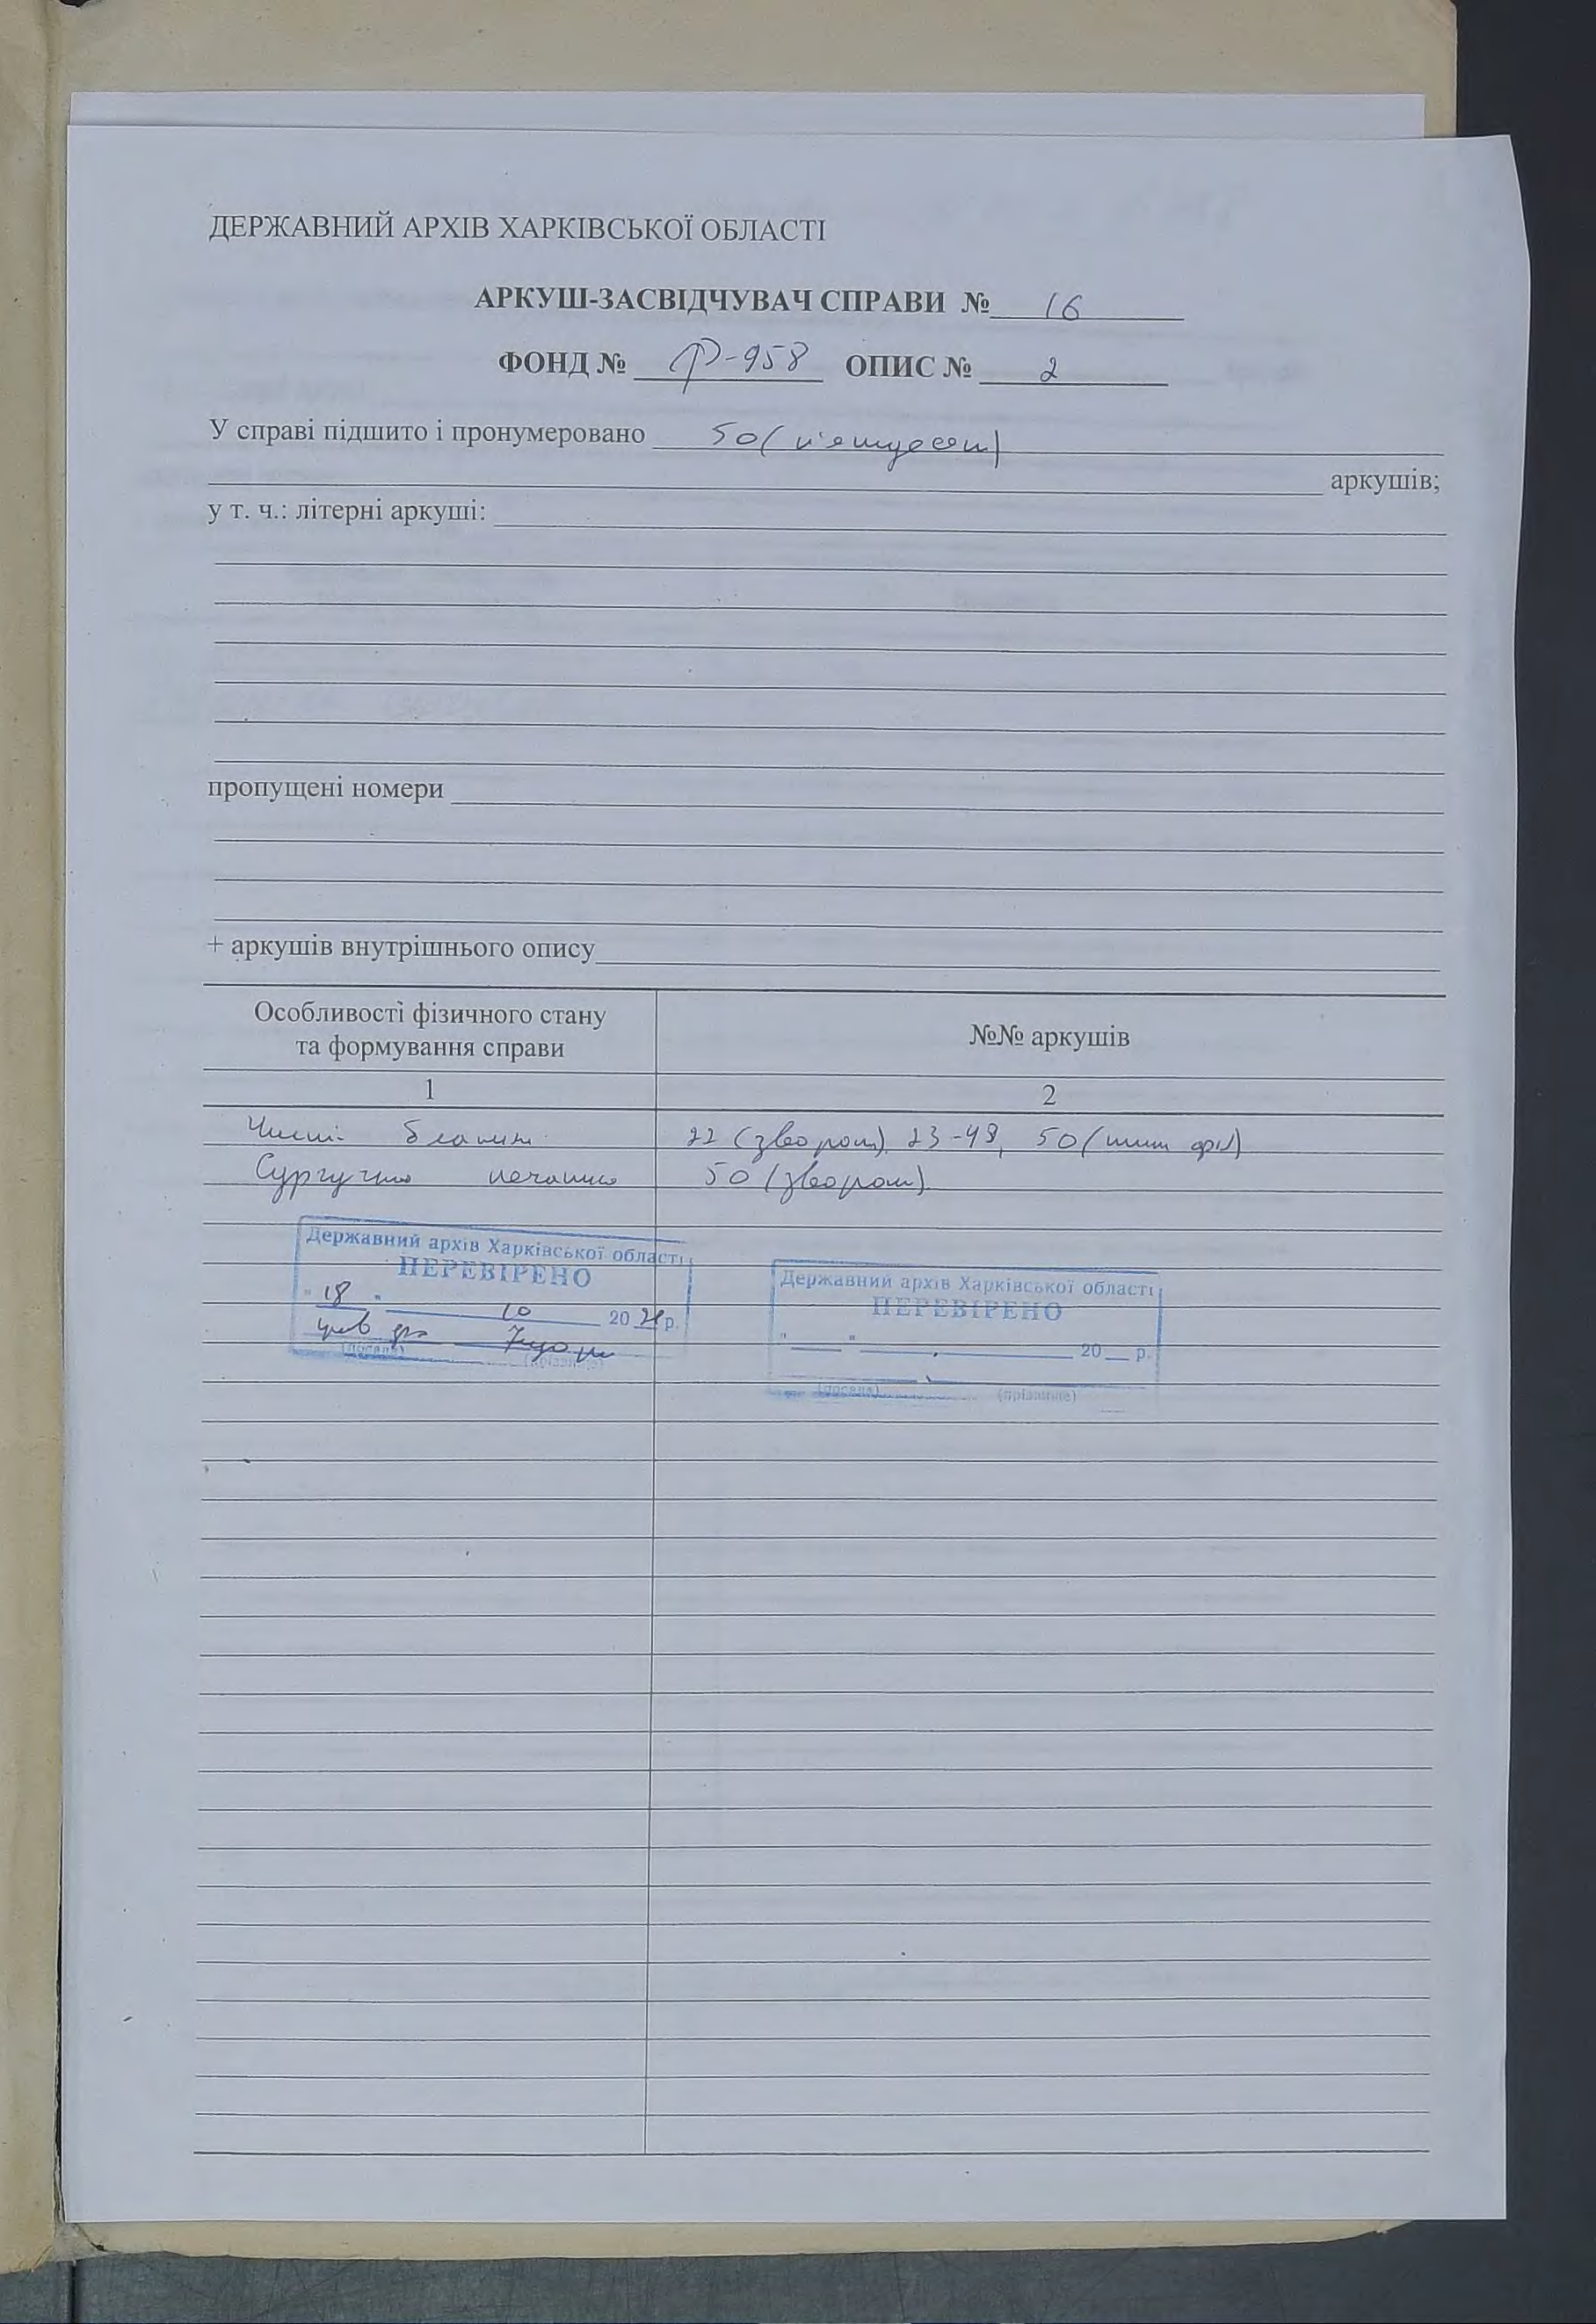 ДЕРЖАВНИЙ АРХІВ ХАРКІВСЬКОЇ ОБЛАСТІ
АРКУШ-ЗАСВІДЧУВАЧ СПРАВИ № 16
ФОНД № Р-958 ОПИС № 2
У справі підшито і пронумеровано 50 (п'ятдесят)
аркушів;
у т. ч.: літерні аркуші:
пропущені номери
+ аркушів внутрішнього опису
Особливості фізичного стану
та формування справи
№№ аркушів
1
2
Чисті бланки 22 (зворот) 23-48, 50 (
Сургучна печатка 50 (зворот)
Державний архів Харківської області
ПЕРЕВІРЕНО
" 18 " 10 20 р.
(посада) (прізвище)
Державний архів Харківської області
ПЕРЕВІРЕНО
" " 20 р.
(посада) (прізвище)